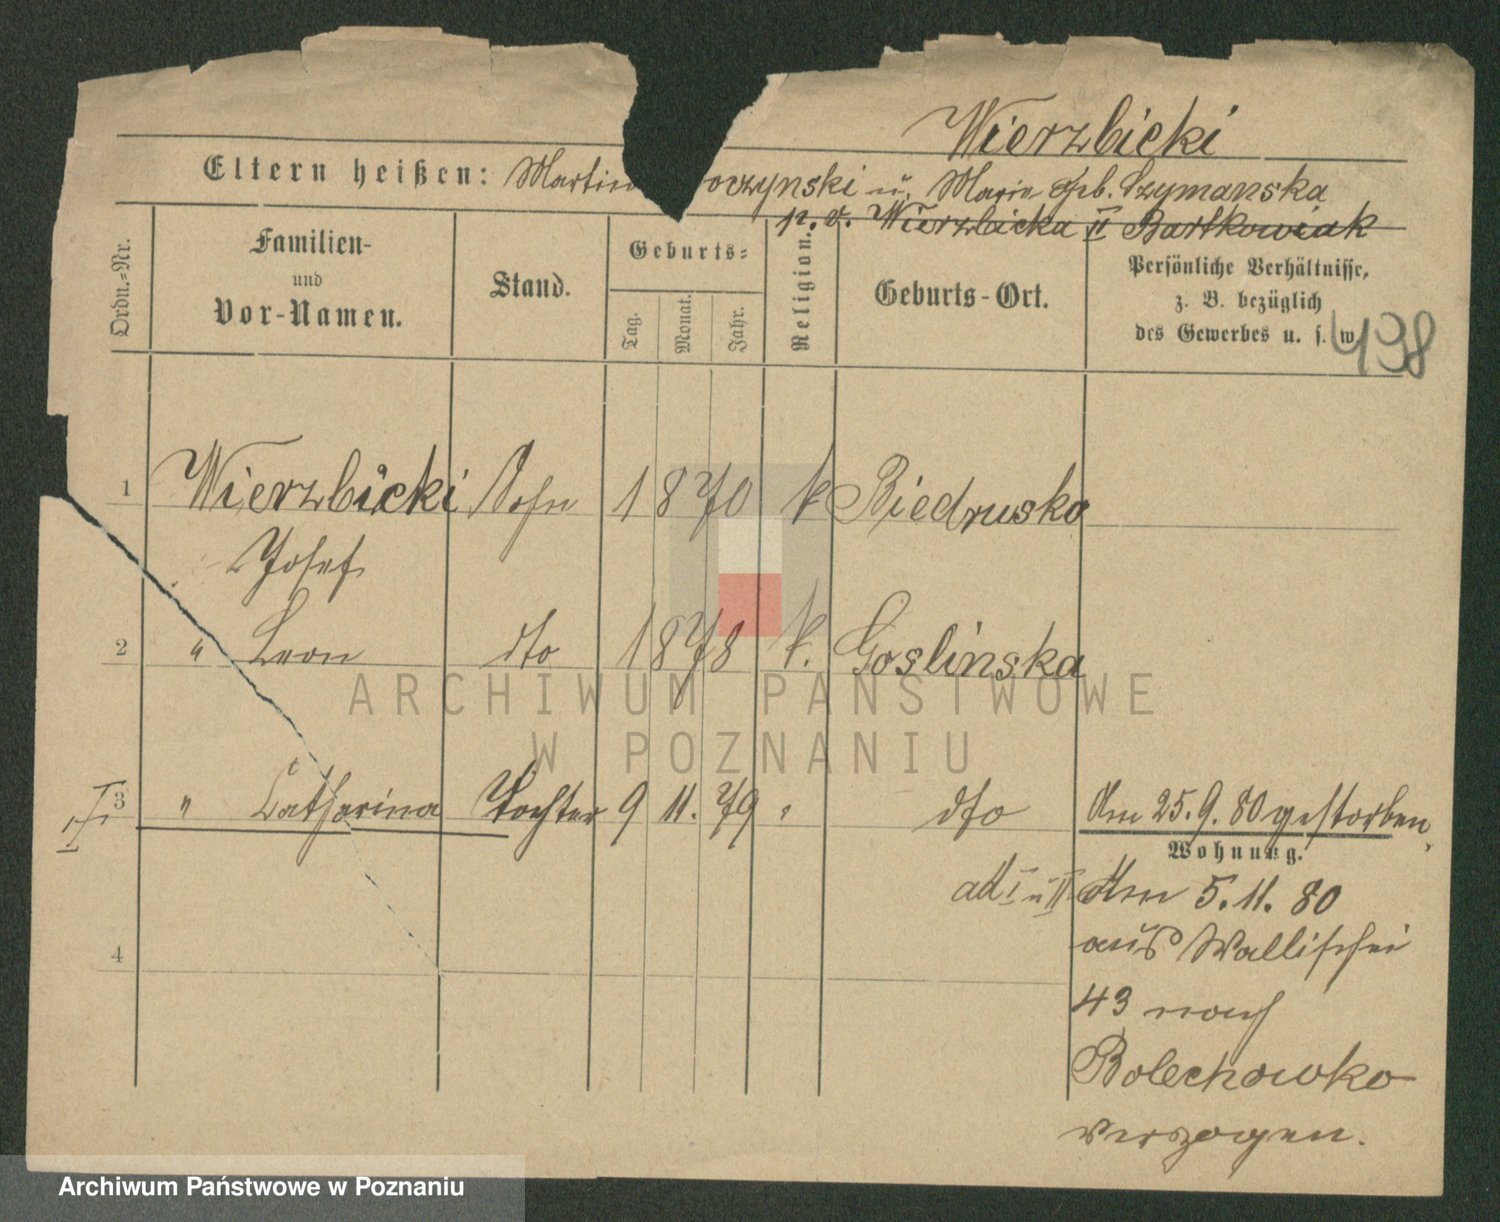 Wierzbicki
Eltern heißen: Martin oczynski u. Marie geb. Szymanska
p. v. Wierzbicka II Bartkowiak
Ordn.-Nr.
Familien-
und
Vor-Namen.
Stand.
Geburts-
Tag.
Monat.
Jahr.
Religion.
Geburts-Ort.
Persönliche Verhältnisse,
z. B. bezüglich
des Gewerbes u. s. w.
498
1 Wierzbicki Sohn 1870 k Biedrusko
Josef
2 " Leon dto 1878 k. Goslinska
ARCHIWUM PAŃSTWOWE
W POZNANIU
3 " Catharina Tochter 9 11. 79 " dto Am 25.9.80 gestorben,
Wohnung.
ad I u II Am 5.11.80
aus Wallischei
4
43 nach
Bolechowko
verzogen.
Archiwum Państwowe w Poznaniu